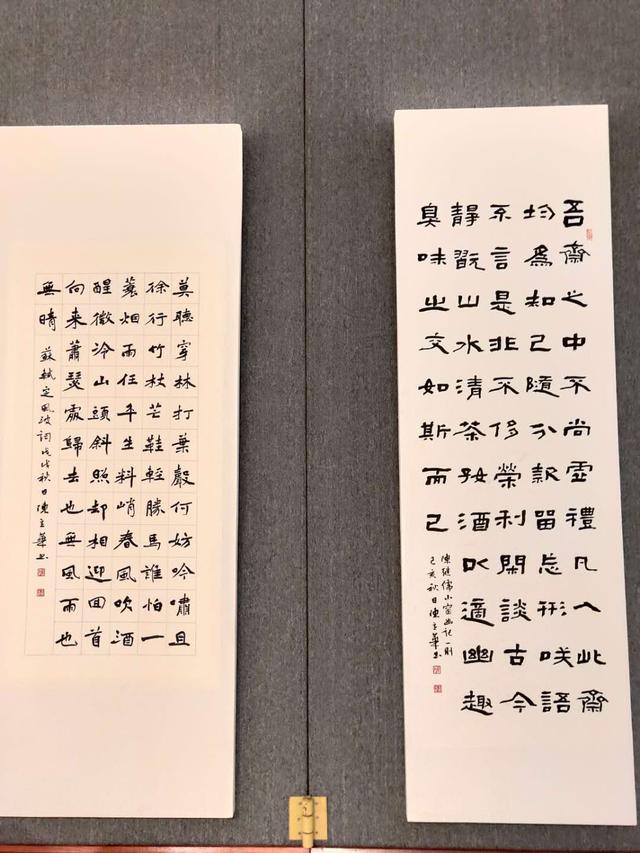 吾齋之中不尚虛禮凡入此齋
均爲知己隨分款留忘形咲語
不言是非不侈榮利閒談古今
靜翫山水清茶好酒以適幽趣
臭味之交如斯而已
陳繼儒小窗幽記一則
己亥秋日陳立華书
莫聽穿林打葉聲何妨吟嘯且
徐行竹杖芒鞋輕勝馬誰怕一
蓑烟雨任平生料峭春風吹酒
醒微冷山頭斜照却相迎回首
向来蕭瑟處歸去也無風雨也
無晴
蘇軾定風波詞戊戌秋日陳立華书